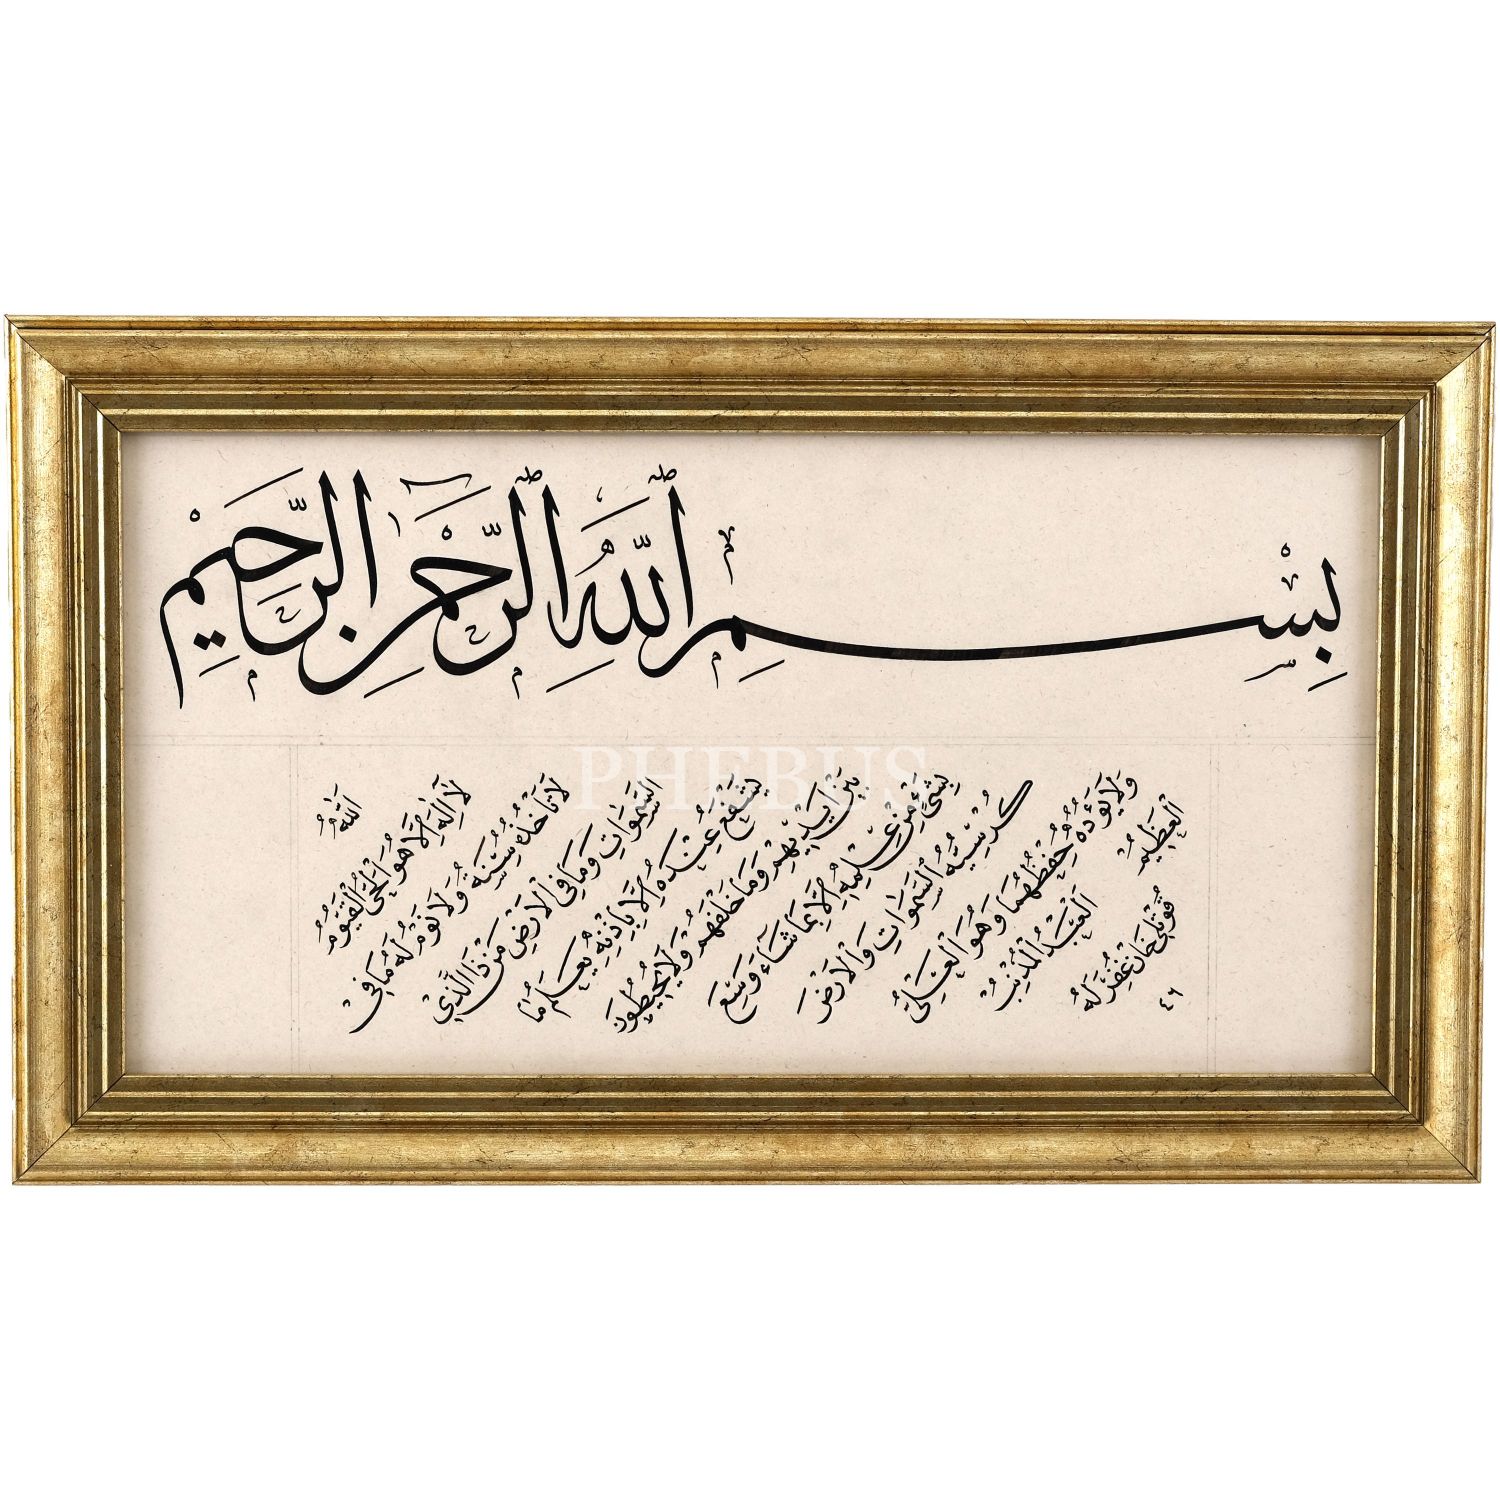 بِسْمِ اللّٰهِ الرَّحْمٰنِ الرَّحِيْمِ
PHEBUS
اَللّٰهُ
لَا اِلٰهَ اِلَّا هُوَ اَلْحَيُّ الْقَيُّومُ
لَا تَأْخُذُهُ سِنَةٌ وَلَا نَوْمٌ لَهُ مَا فِي
السَّمٰوَاتِ وَمَا فِي الْاَرْضِ مَنْ ذَا الَّذِيْ
يَشْفَعُ عِنْدَهُ اِلَّا بِاِذْنِهِ يَعْلَمُ مَا
بَيْنَ اَيْدِيْهِمْ وَمَا خَلْفَهُمْ وَلَا يُحِيْطُونَ
بِشَيْءٍ مِنْ عِلْمِهِ اِلَّا بِمَا شَاءَ وَسِعَ
كُرْسِيُّهُ السَّمٰوَاتِ وَالْاَرْضَ
وَلَا يَؤُدُهُ حِفْظُهُمَا وَهُوَ الْعَلِيُّ
الْعَظِيْمُ
اَلْعَبْدُ الْمُذْنِبُ
قُوتْلِى خَان غُفِرَ لَهُ
٤٦